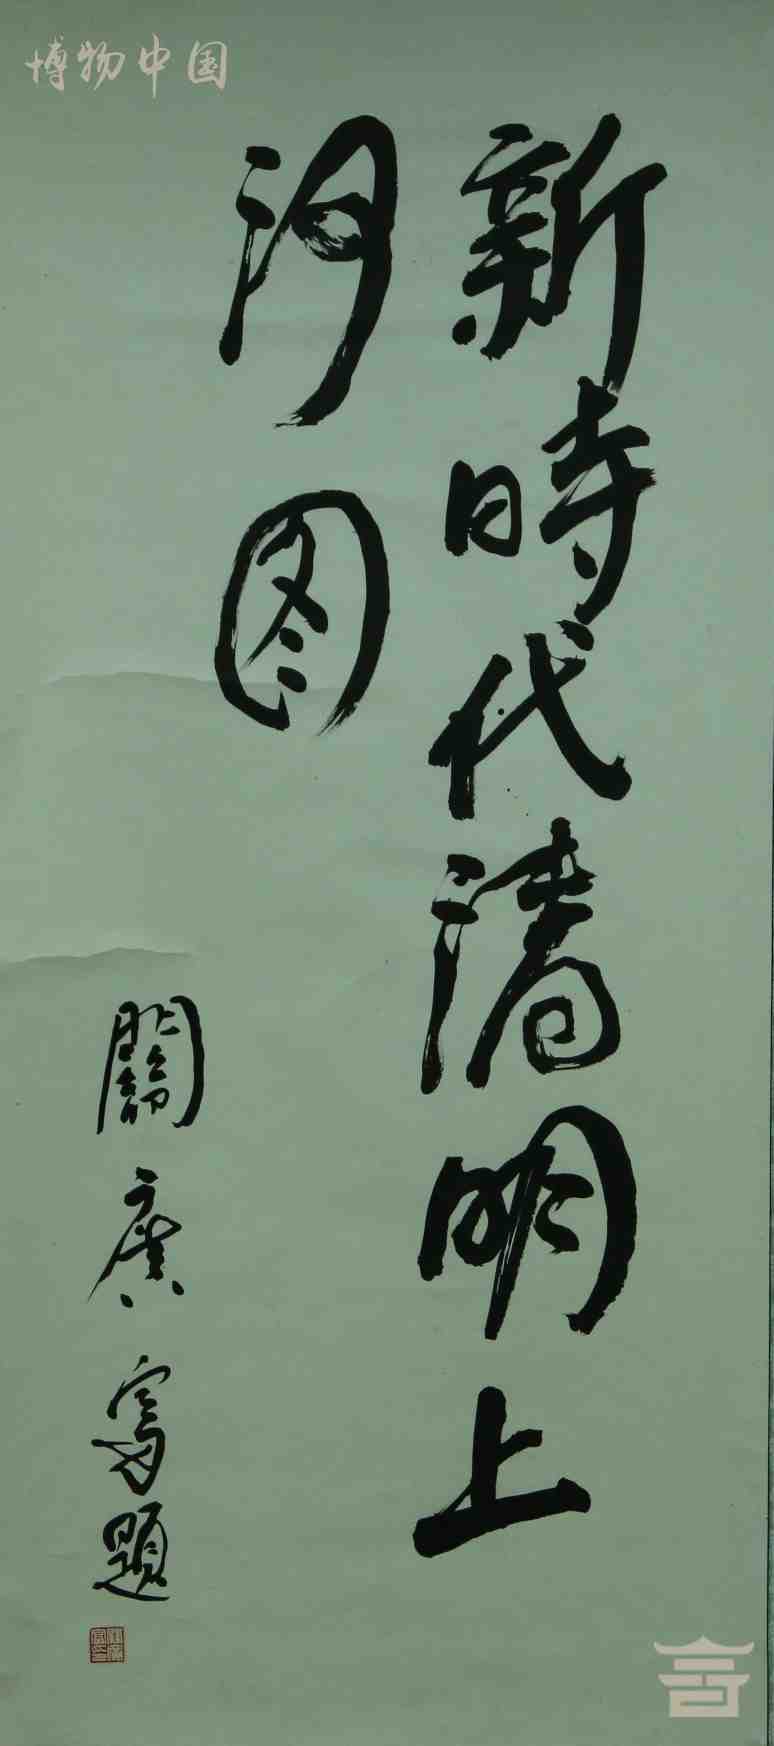 博物中国
新時代清明上
河图
關廣富題